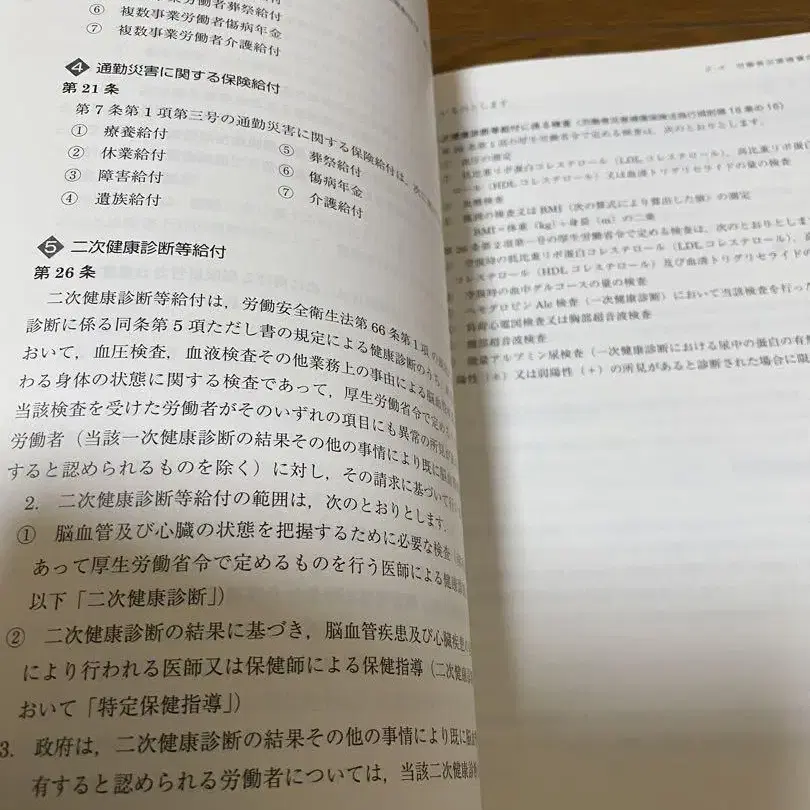 複数事業労働者葬祭給付
⑥ 複数事業労働者傷病年金
⑦ 複数事業労働者介護給付
4 通勤災害に関する保険給付
第21条
第7条第1項第三号の通勤災害に関する保険給付は,次に
① 療養給付
② 休業給付
③ 障害給付
④ 遺族給付
⑤ 葬祭給付
⑥ 傷病年金
⑦ 介護給付
5 二次健康診断等給付
第26条
二次健康診断等給付は,労働安全衛生法第66条第1項の
診断に係る同条第5項ただし書の規定による健康診断のうち,
おいて,血圧検査,血液検査その他業務上の事由による脳血管
わる身体の状態に関する検査であって,厚生労働省令で定める
当該検査を受けた労働者がそのいずれの項目にも異常の所見が
労働者(当該一次健康診断の結果その他の事情により既に脳血管
すると認められるものを除く)に対し,その請求に基づいて行
2. 二次健康診断等給付の範囲は,次のとおりとします.
① 脳血管及び心臓の状態を把握するために必要な検査
あって厚生労働省令で定めるものを行う医師による健康診断
以下「二次健康診断」)
② 二次健康診断の結果に基づき,脳血管疾患及び心臓疾患の
により行われる医師又は保健師による保健指導(二次健康
おいて「特定保健指導」)
3. 政府は,二次健康診断の結果その他の事情により既に脳
有すると認められる労働者については,当該二次健康診
いるものとします.
次健康診断等給付に係る検査(労働者災害補償保険法施行規則第18条の16)
第26条第1項の厚生労働省令で定める検査は,次のとおりとします.
血圧の測定
低比重リポ蛋白コレステロール(LDLコレステロール),高比重リポ
ロール(HDLコレステロール)又は血清トリグリセライドの量の検査
血糖検査
腹囲の検査又はBMI(次の算式により算出した値)の測定
BMI=体重(kg)÷身長(m)の二乗
第26条第2項第一号の厚生労働省令で定める検査は,次のとおりとしま
空腹時の低比重リポ蛋白コレステロール(LDLコレステロール),高
コレステロール(HDLコレステロール)及び血清トリグリセライドの
空腹時の血中グルコースの量の検査
ヘモグロビンA1c検査(一次健康診断)において当該検査を行った
負荷心電図検査又は胸部超音波検査
頸部超音波検査
微量アルブミン尿検査(一次健康診断における尿中の蛋白の有無
陽性(±)又は弱陽性(+)の所見があると診断された場合に限